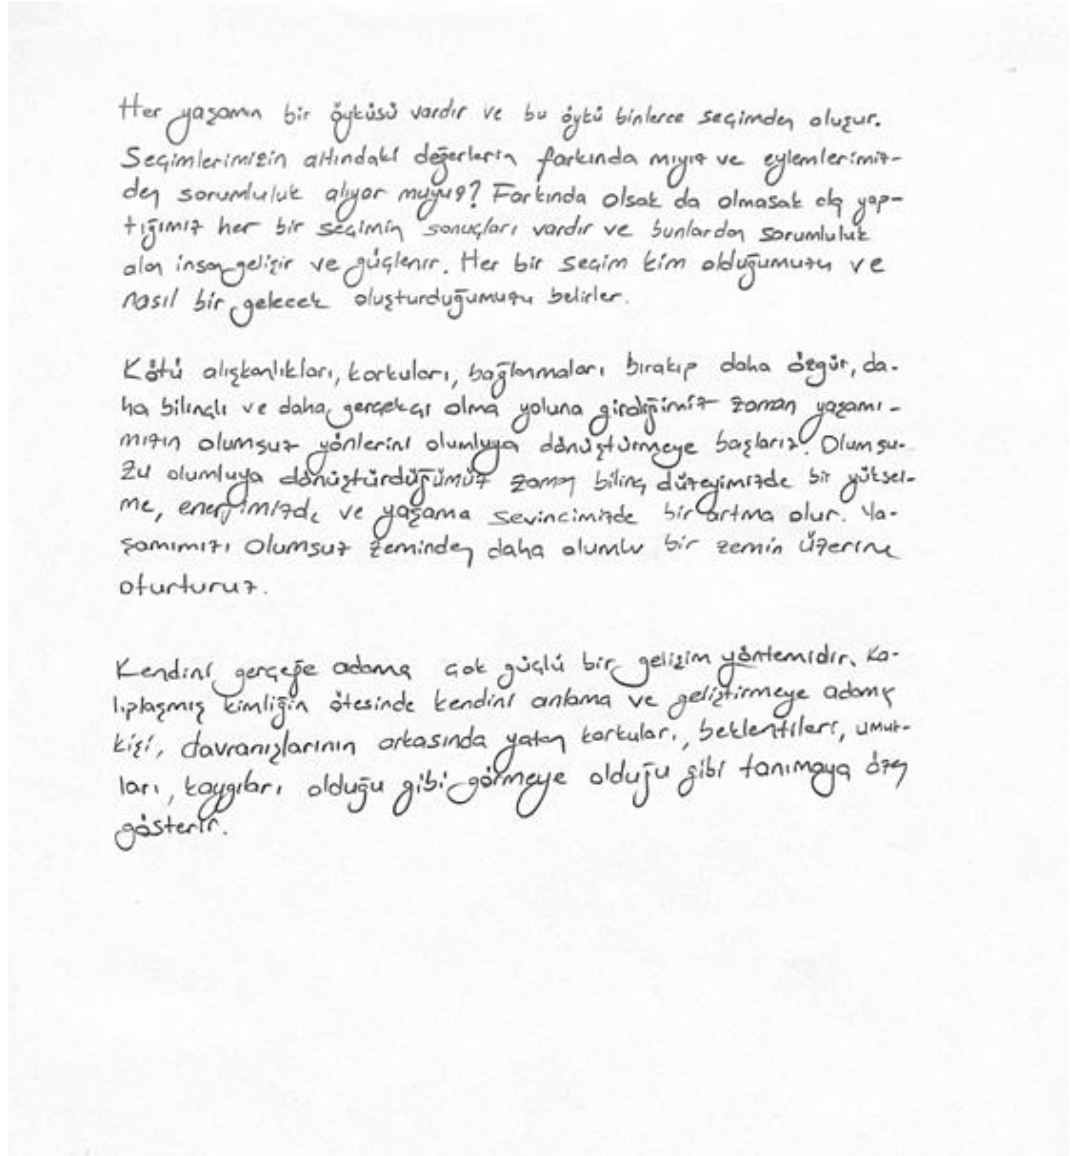 Her yaşamın bir öyküsü vardır ve bu öykü binlerce seçimden oluşur.
Seçimlerimizin altındaki değerlerin farkında mıyız ve eylemlerimiz-
den sorumluluk alıyor muyuz? Farkında olsak da olmasak da yap-
tığımız her bir seçimin sonuçları vardır ve bunlardan sorumluluk
alan insan gelişir ve güçlenir. Her bir seçim kim olduğumuzu ve
nasıl bir gelecek oluşturduğumuzu belirler.
Kötü alışkanlıkları, korkuları, bağlanmaları bırakıp daha özgür, da-
ha bilinçli ve daha gerçekçi olma yoluna girdiğimiz zaman yaşamı-
mızın olumsuz yönlerini olumluya dönüştürmeye başlarız. Olumsu-
zu olumluya dönüştürdüğümüz zaman bilinç düzeyimizde bir yüksel-
me, enerjimizde ve yaşama sevincimizde bir artma olur. Ya-
şamımızı olumsuz zeminden daha olumlu bir zemin üzerine
oturturuz.
Kendini gerçeğe adama çok güçlü bir gelişim yöntemidir. Ka-
lıplaşmış kimliğin ötesinde kendini anlama ve geliştirmeye adamış
kişi, davranışlarının arkasında yatan korkuları, beklentileri, umut-
ları, kaygıları olduğu gibi görmeye olduğu gibi tanımaya özen
gösterir.